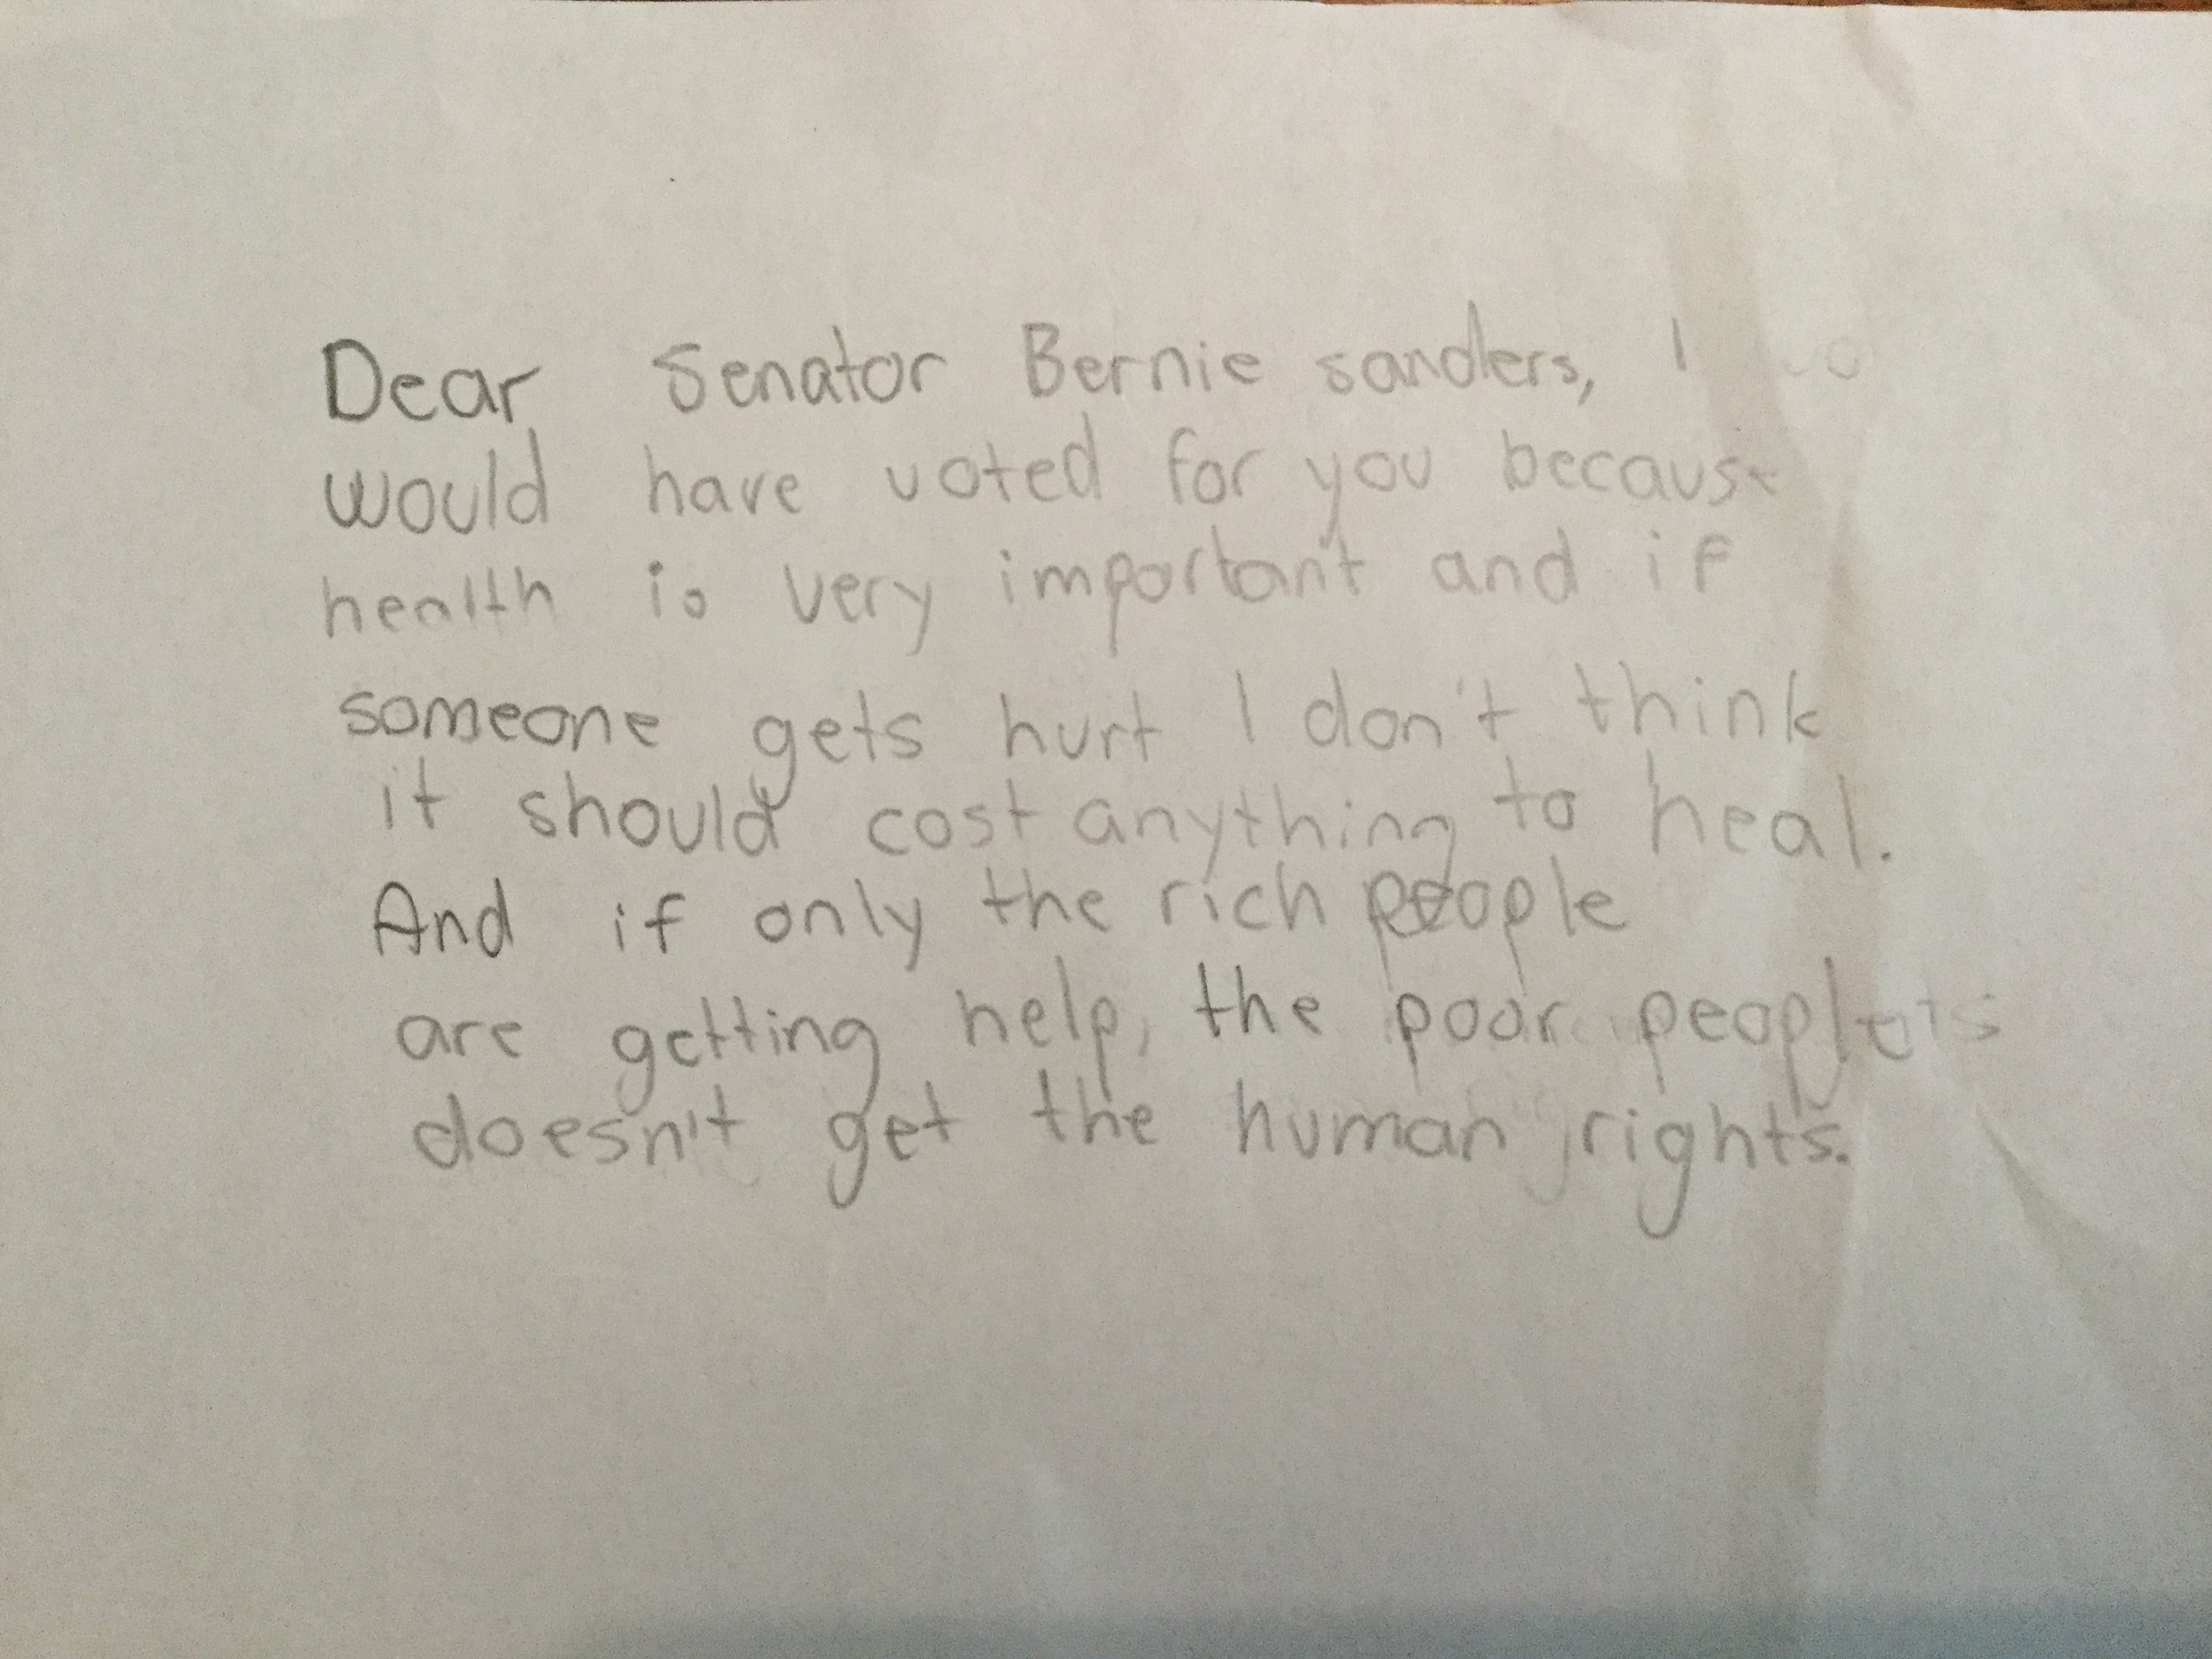 Dear Senator Bernie sanders, I
would have voted for you because
health is very important and if
someone gets hurt I don't think
it should cost anything to heal.
And if only the rich people
are getting help, the poor people
doesn't get the human rights.